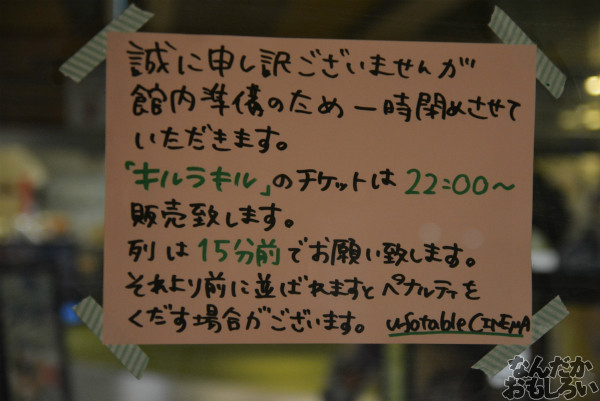 誠に申し訳ございませんが
館内準備のため一時閉めさせて
いただきます。
「キルラキル」のチケットは22:00〜
販売致します。
列は15分前でお願い致します。
それより前に並ばれますとペナルティを
くだす場合がございます。 ufotable CINEMA
なんだか
おもしろい